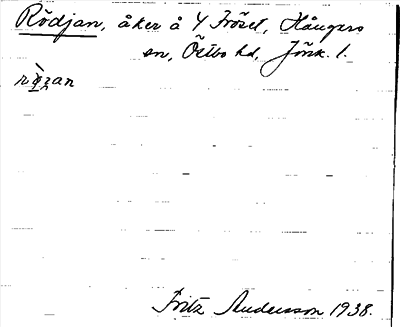 Rödjan, åker å Y Fröset, Hångers
sn, Östbo hd, Jönk. l.
rø̀ʒan
Fritz Andersson 1938.